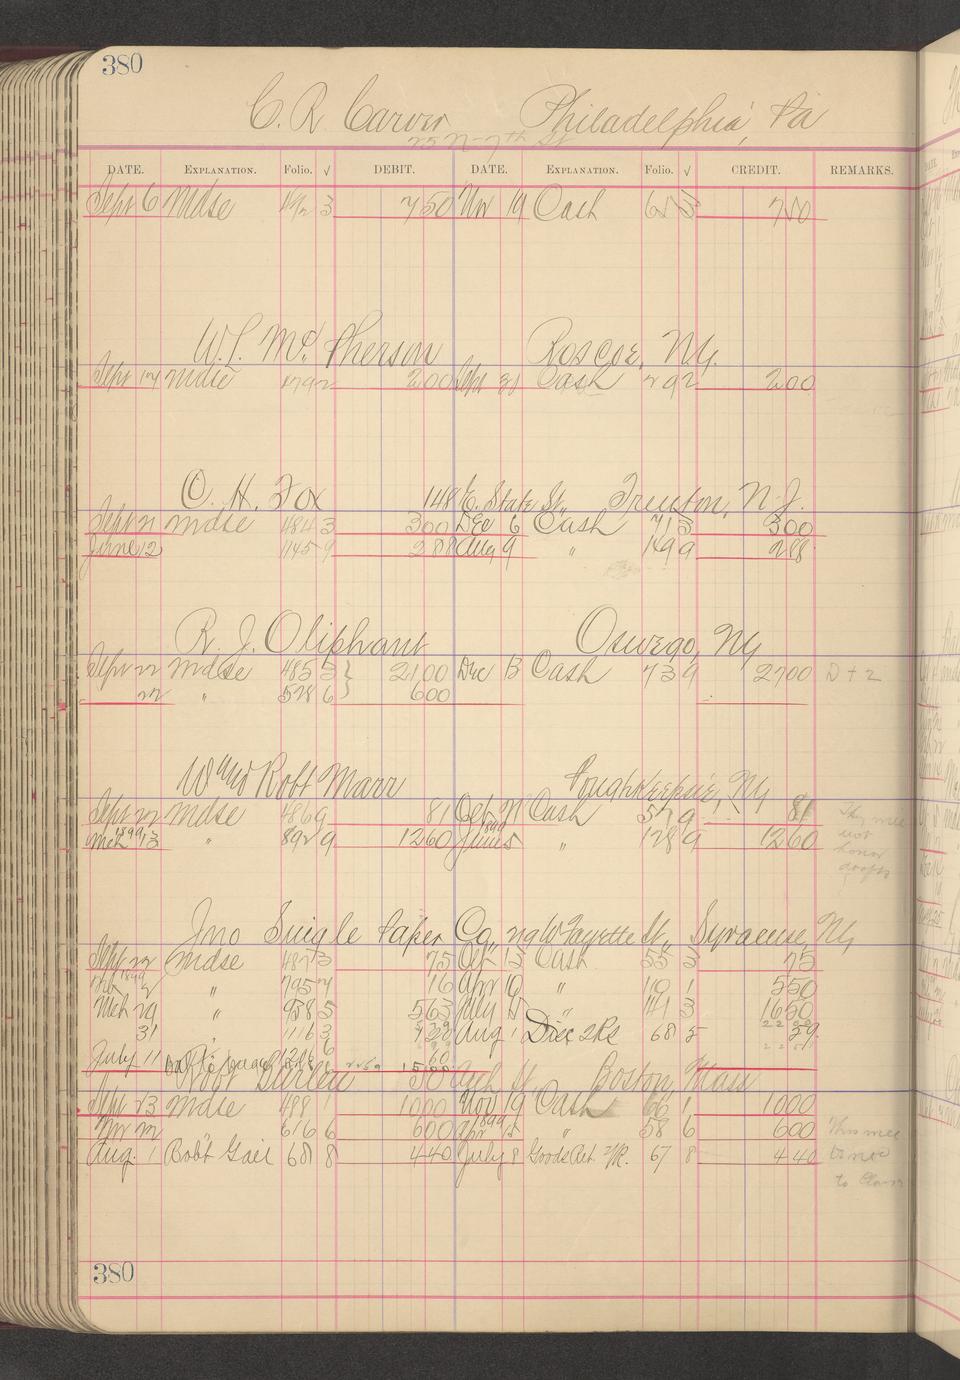 380
C. R. Carver Philadelphia, Pa
25 N-7th St
DATE. EXPLANATION. Folio. √ DEBIT. DATE. EXPLANATION. Folio. √ CREDIT. REMARKS.
Sept 6 Mdse 3 750 Nov 19 Cash 65 3 750
W. T. McPherson Roscoe, Ny.
Sept 14 mdse 200 Cash 292 200
O. H. Fox 148 E. State St., Trenton, N.J.
Sept 21 mdse 484 3 300 Dec 6 Cash 71 3 300
June 12 1145 9 288 Aug 9 " 149 9 288
R. J. Oliphant Oswego, Ny
Sept 22 Mdse 485 3 } 2100 Dec 13 Cash 73 9 2700 D + 2
22 " 578 6 } 600
Wm Robt Marr Poughkeepsie, Ny
Sept 22 Mdse 486 9 81 Oct 27 Cash 57 9 81 They will
1899 1899 not
Mch 13 " 892 9 1260 June 5 " 128 9 1260 honor
drafts
Jno Single Paper Co., W Fayette St., Syracuse, Ny
Sept 22 Mdse 487 3 75 Oct 13 Cash 55 3 75
1899
Feb 2 " 795 16 Apr 10 " 10 1 550
Mch 29 " 958 5 563 July 15 " 141 3 1650
31 1116 3 Aug 1 68 5 29
July 11 6 60
Arch St., Boston Mass
Sept 23 Mdse 488 1 1000 Nov 19 Cash 66 1 1000
1899
Nov 22 " 616 6 600 Apr 15 " 58 6 600 This
Aug. 1 Bob't Gair 68 8 440 July 8 Goods Ret 67 8 440
to
380